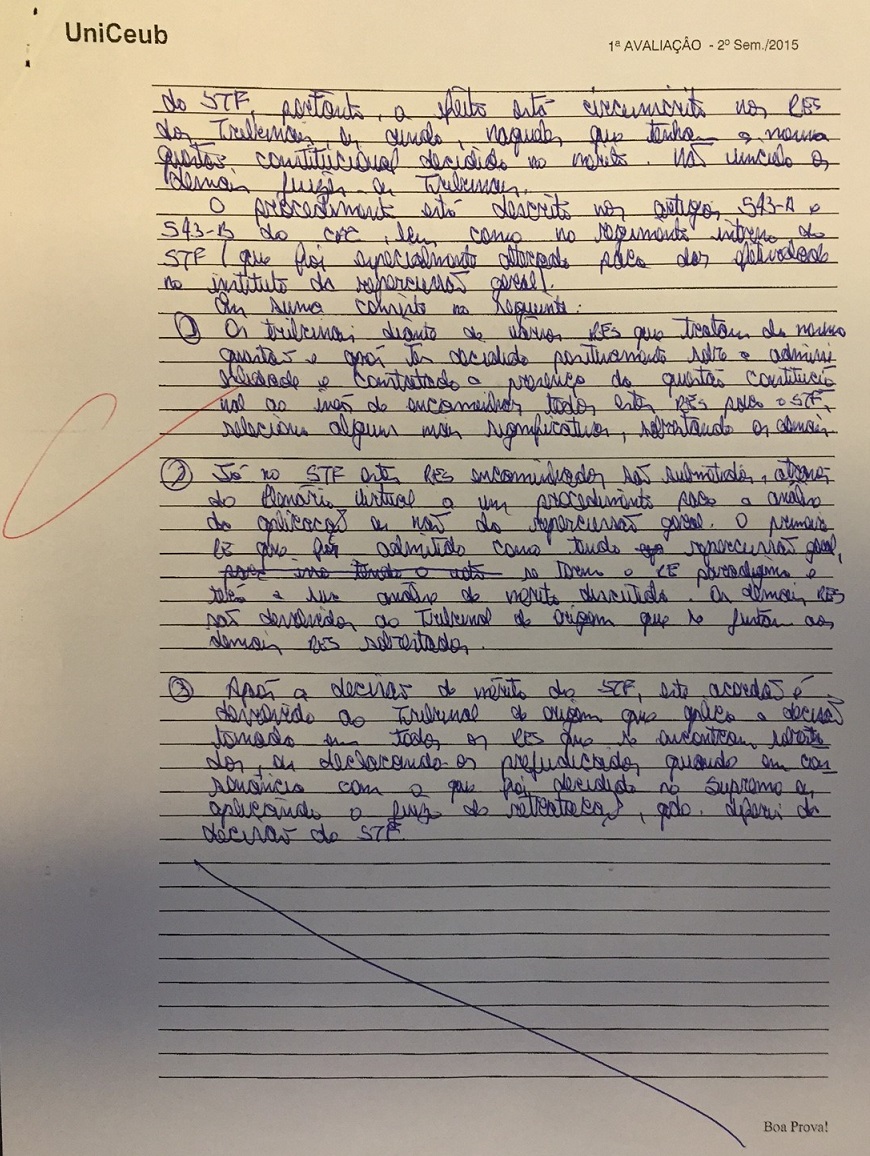 UniCeub
1ª AVALIAÇÃO - 2º Sem./2015
do STF, portanto, o efeito está circunscrito nos RES
dos Tribunais e, ainda, naqueles que tenham a mesma
questão constitucional decidida no mérito. Não vincula os
demais juízes ou Tribunais.
O procedimento está descrito nos artigos 543-A e
543-B do CPC, bem como no regimento interno do
STF (que foi especialmente alterado para dar efetividade
no instituto da repercussão geral).
Em suma consiste no seguinte:
① Os tribunais diante de vários RES que tratam da mesma
questão e após ter decidido positivamente sobre a admissi
bilidade e constatado a presença da questão constitucio
nal ao invés de encaminhar todos estes RES para o STF,
seleciona alguns mais significativos, sobrestando os demais.
② Já no STF estes RES encaminhados são submetidos, através
do Plenário Virtual a um procedimento para a análise
da aplicação ou não da repercussão geral. O primeiro
RE que foi admitido como tendo repercussão geral,
se torna o RE paradigma e
terá a sua análise de mérito discutida. Os demais RES
são devolvidos ao Tribunal de origem que se juntam aos
demais RES sobrestados.
③ Após a decisão de mérito do STF, este acórdão é
devolvido ao Tribunal de origem que aplica a decisão
tomada em todos os RES que se encontram sobresta
dos, ou declarando-os prejudicados quando em con
sonância com o que foi decidido no Supremo ou
aplicando o juízo de retratação, qdo. diferir da
decisão do STF.
Boa Prova!